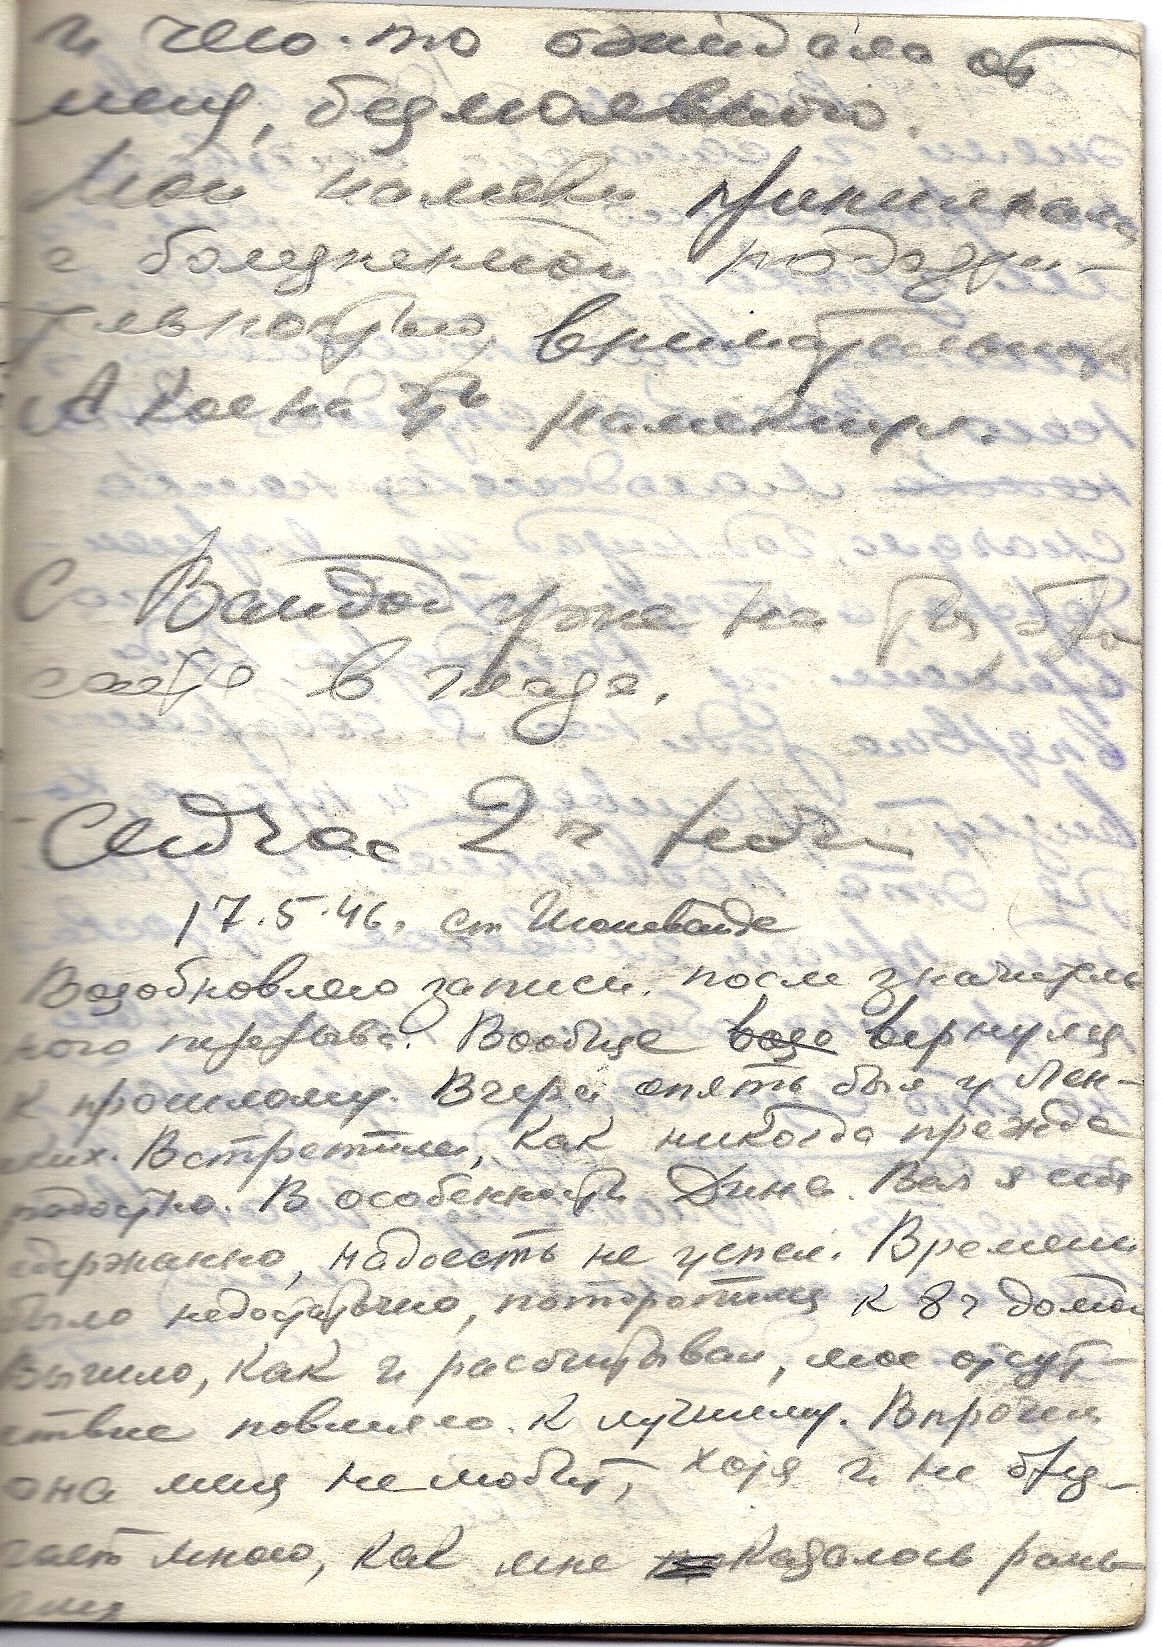 и чего-то ожидала от
меня, безмолвного.
Мои намеки принимала
с болезненной подозри-
тельностью, внимательно
А кое на что намекнул.
С Вандой уже на
в гнезде.
Сейчас 2 ч ночи
17.5.46. ст
Возобновляю записи. после значитель
ного перерыва. Вообще возв вернулся
к прошлому. Вчера опять был у Лен-
ких. Встретили, как никогда прежде
радостно. В особенности Дина. Вел я себя
сдержанно, надоесть не успел. Времени
было недостаточно, поторопился к 8 ч домой
Вышло, как и рассчитывал, мое отсут-
ствие повлияло к лучшему. Впрочем
она меня не любит, хотя и не брез-
гает мною, как мне казалось рань-